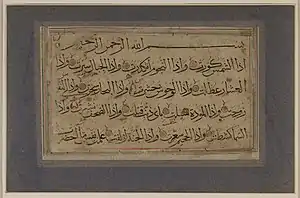 بسم الله الرحمن الرحيم
اذا الشمس كورت واذا النجوم انكدرت واذا الجبال سيرت واذا
العشار عطلت واذا الوحوش حشرت واذا البحار سجرت واذا النفوس
زوجت واذا الموءودة سئلت باي ذنب قتلت واذا الصحف نشرت واذا
السماء كشطت واذا الجحيم سعرت واذا الجنة ازلفت علمت نفس ما احضرت